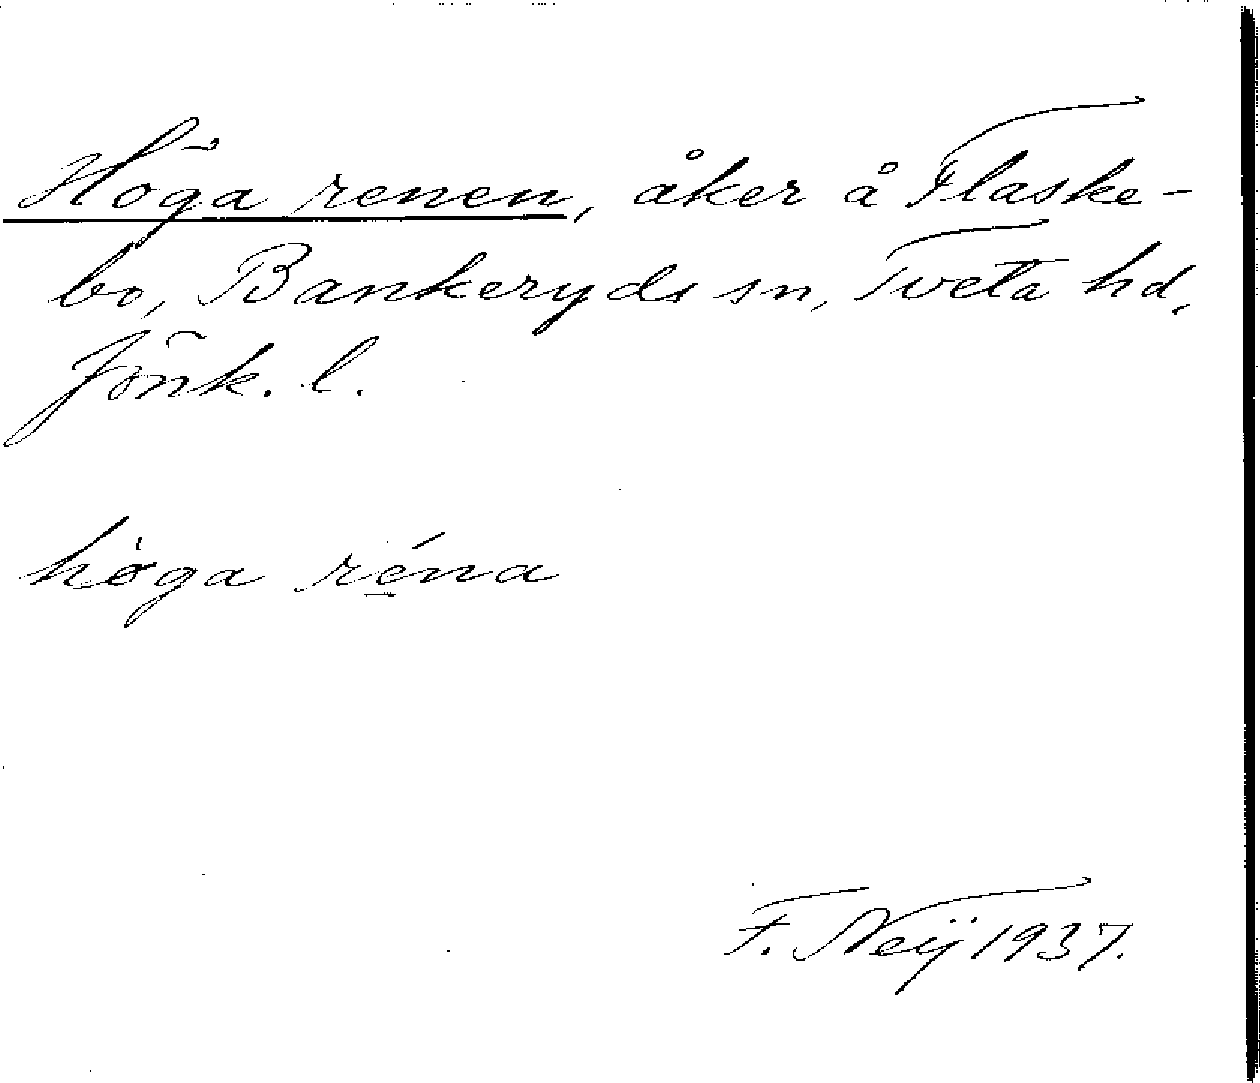 Höga renen, åker å Flaske-
bo, Bankeryds sn, Tveta hd,
Jönk. l.
höga réna
F. Neij 1937.